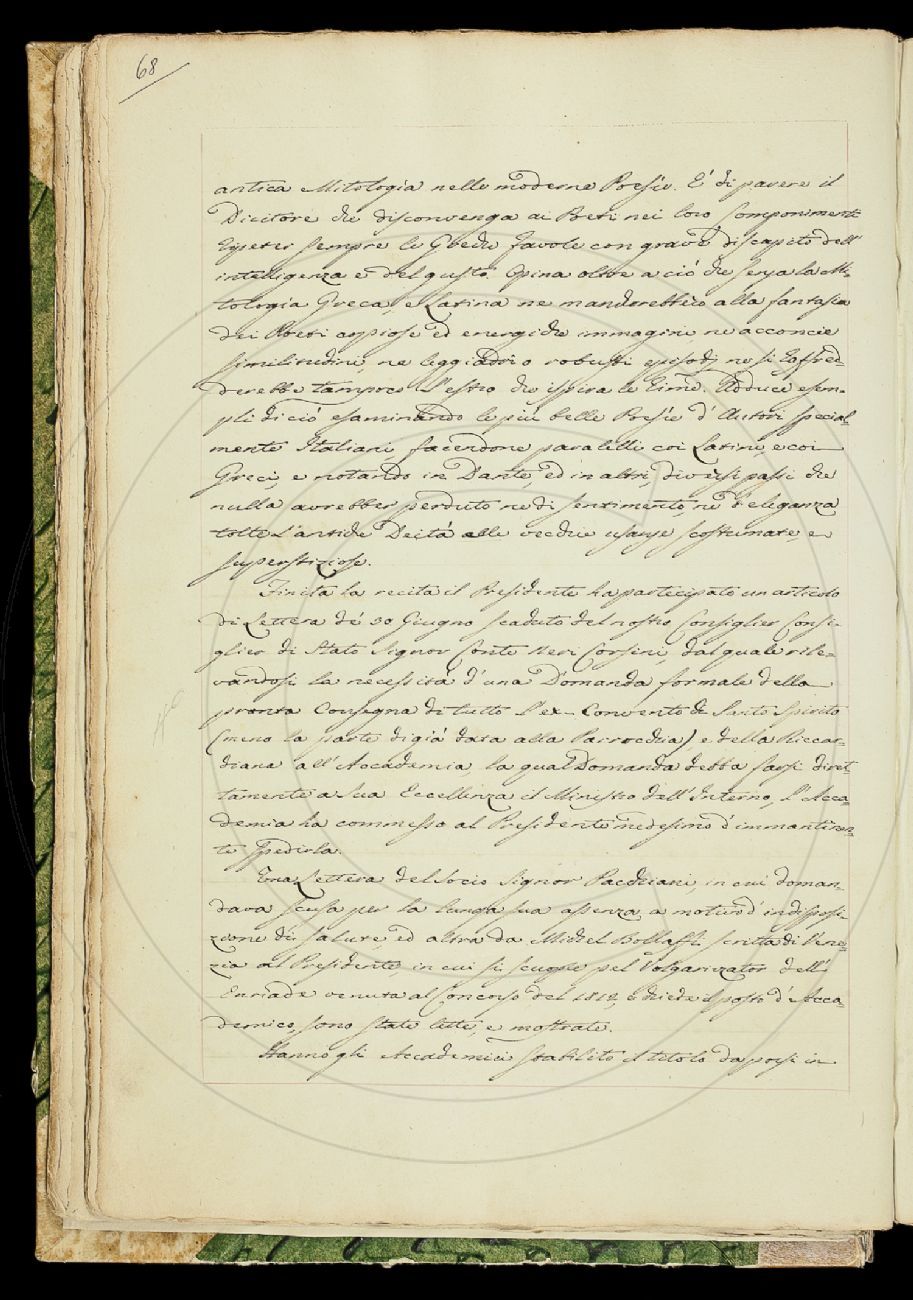 68
antica Mitologia nelle moderne Poesie. E' di parere il
Dicitore che disconvenga ai Poeti nei loro Componimenti
sempre le Greche favole con grave discapito dell'
intelligenza e del gusto. Opina oltre a ciò che senza la Mi=
tologia Greca, e Latina ne mancherebbero alla fantasia
dei Poeti copiose ed energiche immagini, ne acconcie
similitudini, ne leggiadri o robusti episodj, ne si raffred=
derebbe tampoco l'estro che ispira le Rime. Adduce esem=
pli di ciò esaminando le più belle Poesie d'Autori special=
mente Italiani, facendone paralelli coi Latini, e coi
Greci, e notando in Dante, ed in altri, diversi passi che
nulla avrebber perduto ne di sentimento, ne d'eleganza
tolte l'antiche Deità alle vecchie usanze scostumate, e
superstiziose.
Finita la recita il Presidente ha partecipato un articolo
di Lettera de' 30 Giugno scaduto del nostro Consiglier Consi=
gliere di Stato Signor Conte Neri Corsini, dal quale rile=
vandosi la necessità d'una Domanda formale della
pronta Consegna di tutto l'ex-Convento di Santo Spirito
(meno la parte digià data alla Parrocchia), e della Riccar=
diana all'Accademia, la qual Domanda debba farsi diret=
tamente a Sua Eccellenza il Ministro dell'Interno, l'Acca=
demia ha commesso al Presidente medesimo d'immantinen=
te spedirla.
Una Lettera del Socio Signor Pacchiani, in cui doman=
dava scusa per la lunga sua assenza, a motivo d'indisposi=
zione di salute, ed altra da Michel Bolaffi scritta di Vene=
zia al Presidente, in cui si scuopre pel Volgarizzator dell'
Enriade venuta al Concorso del 1812, e chiede il posto d'Acca=
demico, sono state lette, e mostrate.
Hanno gli Accademici stabilito il titolo da porsi in